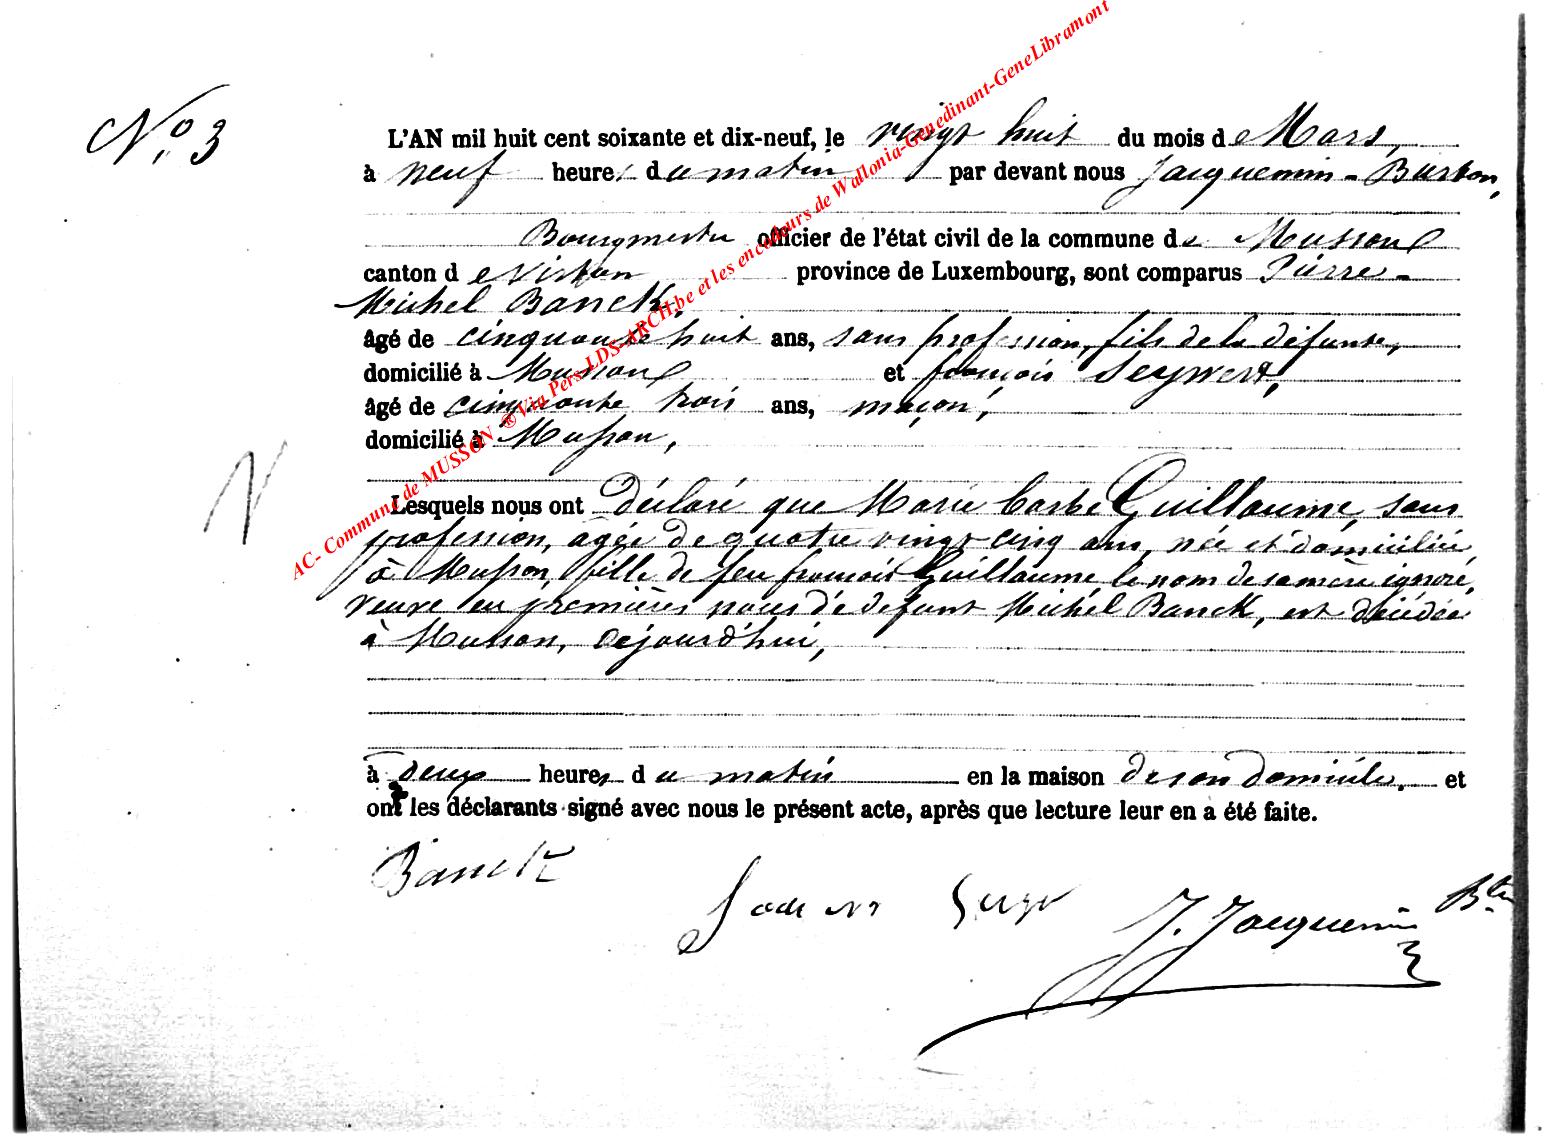 N° 3
L'AN mil huit cent soixante et dix-neuf, le vingt huit du mois de Mars,
à neuf heures du matin par devant nous Jacquemin - Burton,
Bourgmestre officier de l'état civil de la commune de Musson
canton de Virton province de Luxembourg, sont comparus Pierre -
Michel Banck,
âgé de cinquante huit ans, sans profession, fils de la défunte,
domicilié à Musson et françois Seywert,
âgé de cinquante trois ans, maçon,
domicilié à Musson,
N
Lesquels nous ont déclaré que Marie Barbe Guillaume, sans
profession, agée de quatre vingt cinq ans, née et domiciliée
à Musson, fille de feu françois Guillaume le nom de sa mère ignoré,
veuve en premières noces de défunt Michel Banck, est décédée
à Musson, cejourd'hui,
à deux heures du matin en la maison de son domicile, et
ont les déclarants signé avec nous le présent acte, après que lecture leur en a été faite.
Banck
J. Jacquemin
AC- Commune de MUSSON ®Via Pers-LDS-ARCH.be et les encodeurs de Wallonia-Genedinant-GeneLibramont